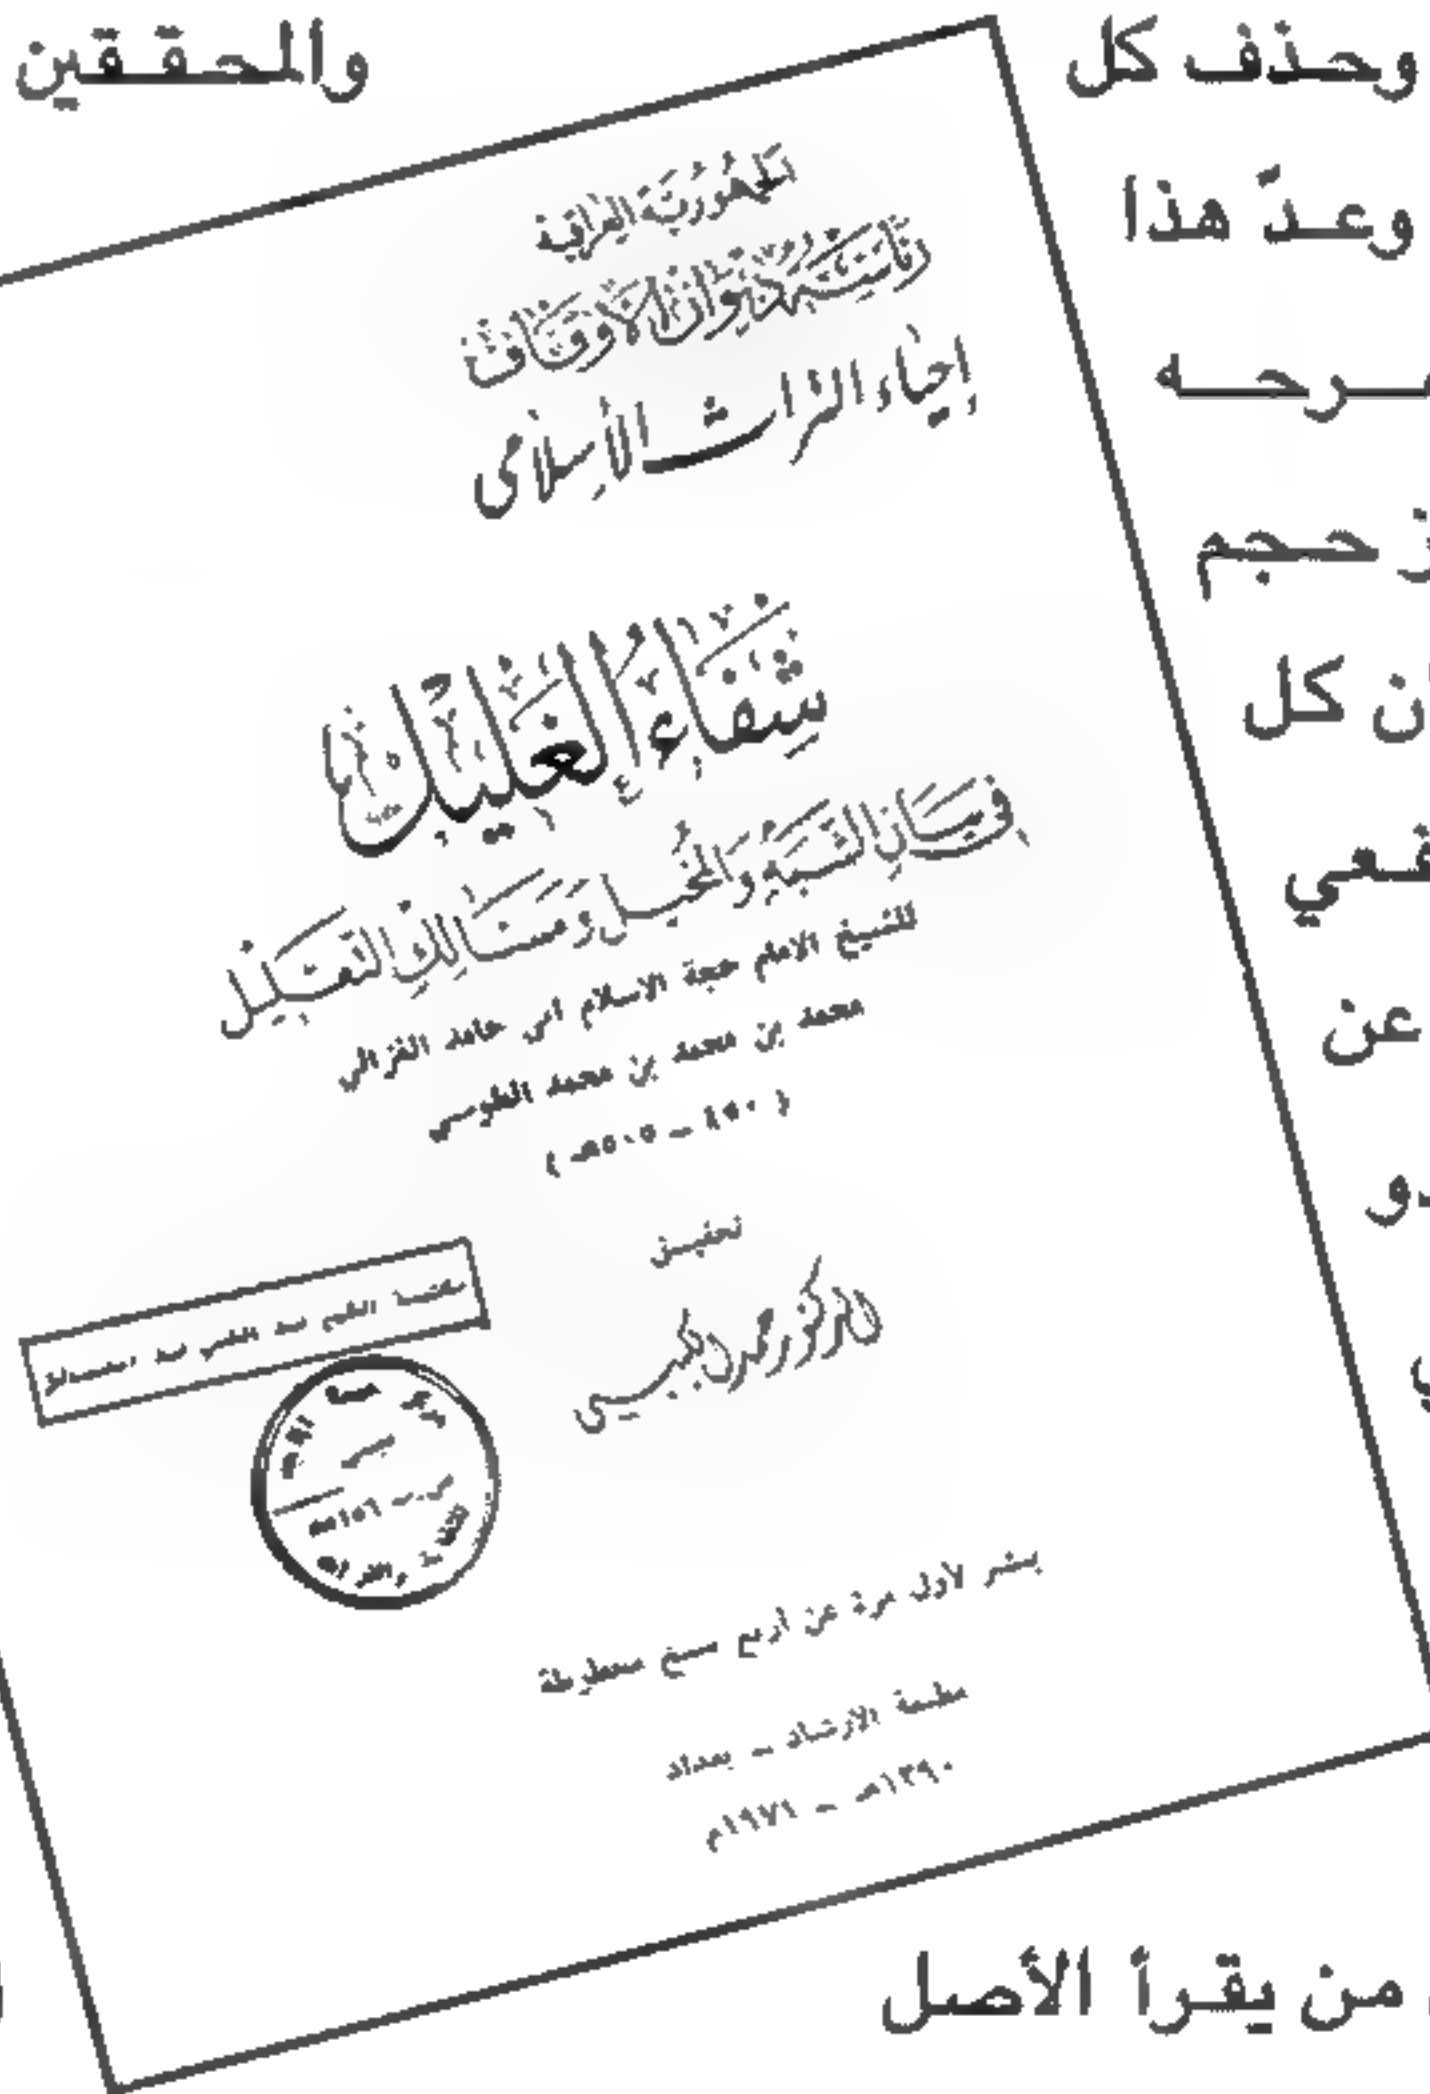 وحذف كل
والمحققين
وعدّ هذا
حجم
كل
عن
الجمهورية العراقية
رئاسة ديوان الأوقاف
إحياء التراث الإسلامي
شِفَاءُ الغَلِيْل
في بيان الشبه والمخيل ومسالك التعليل
للشيخ الامام حجة الاسلام ابي حامد الغزالي
محمد بن محمد بن محمد الطوسي
( ٤٥٠ – ٥٠٥هـ )
تحقيق
الدكتور حمد الكبيسي
ينشر لأول مرة عن أربع نسخ مخطوطة
مطبعة الارشاد – بغداد
١٣٩٠هـ – ١٩٧١م
من يقرأ الأصل